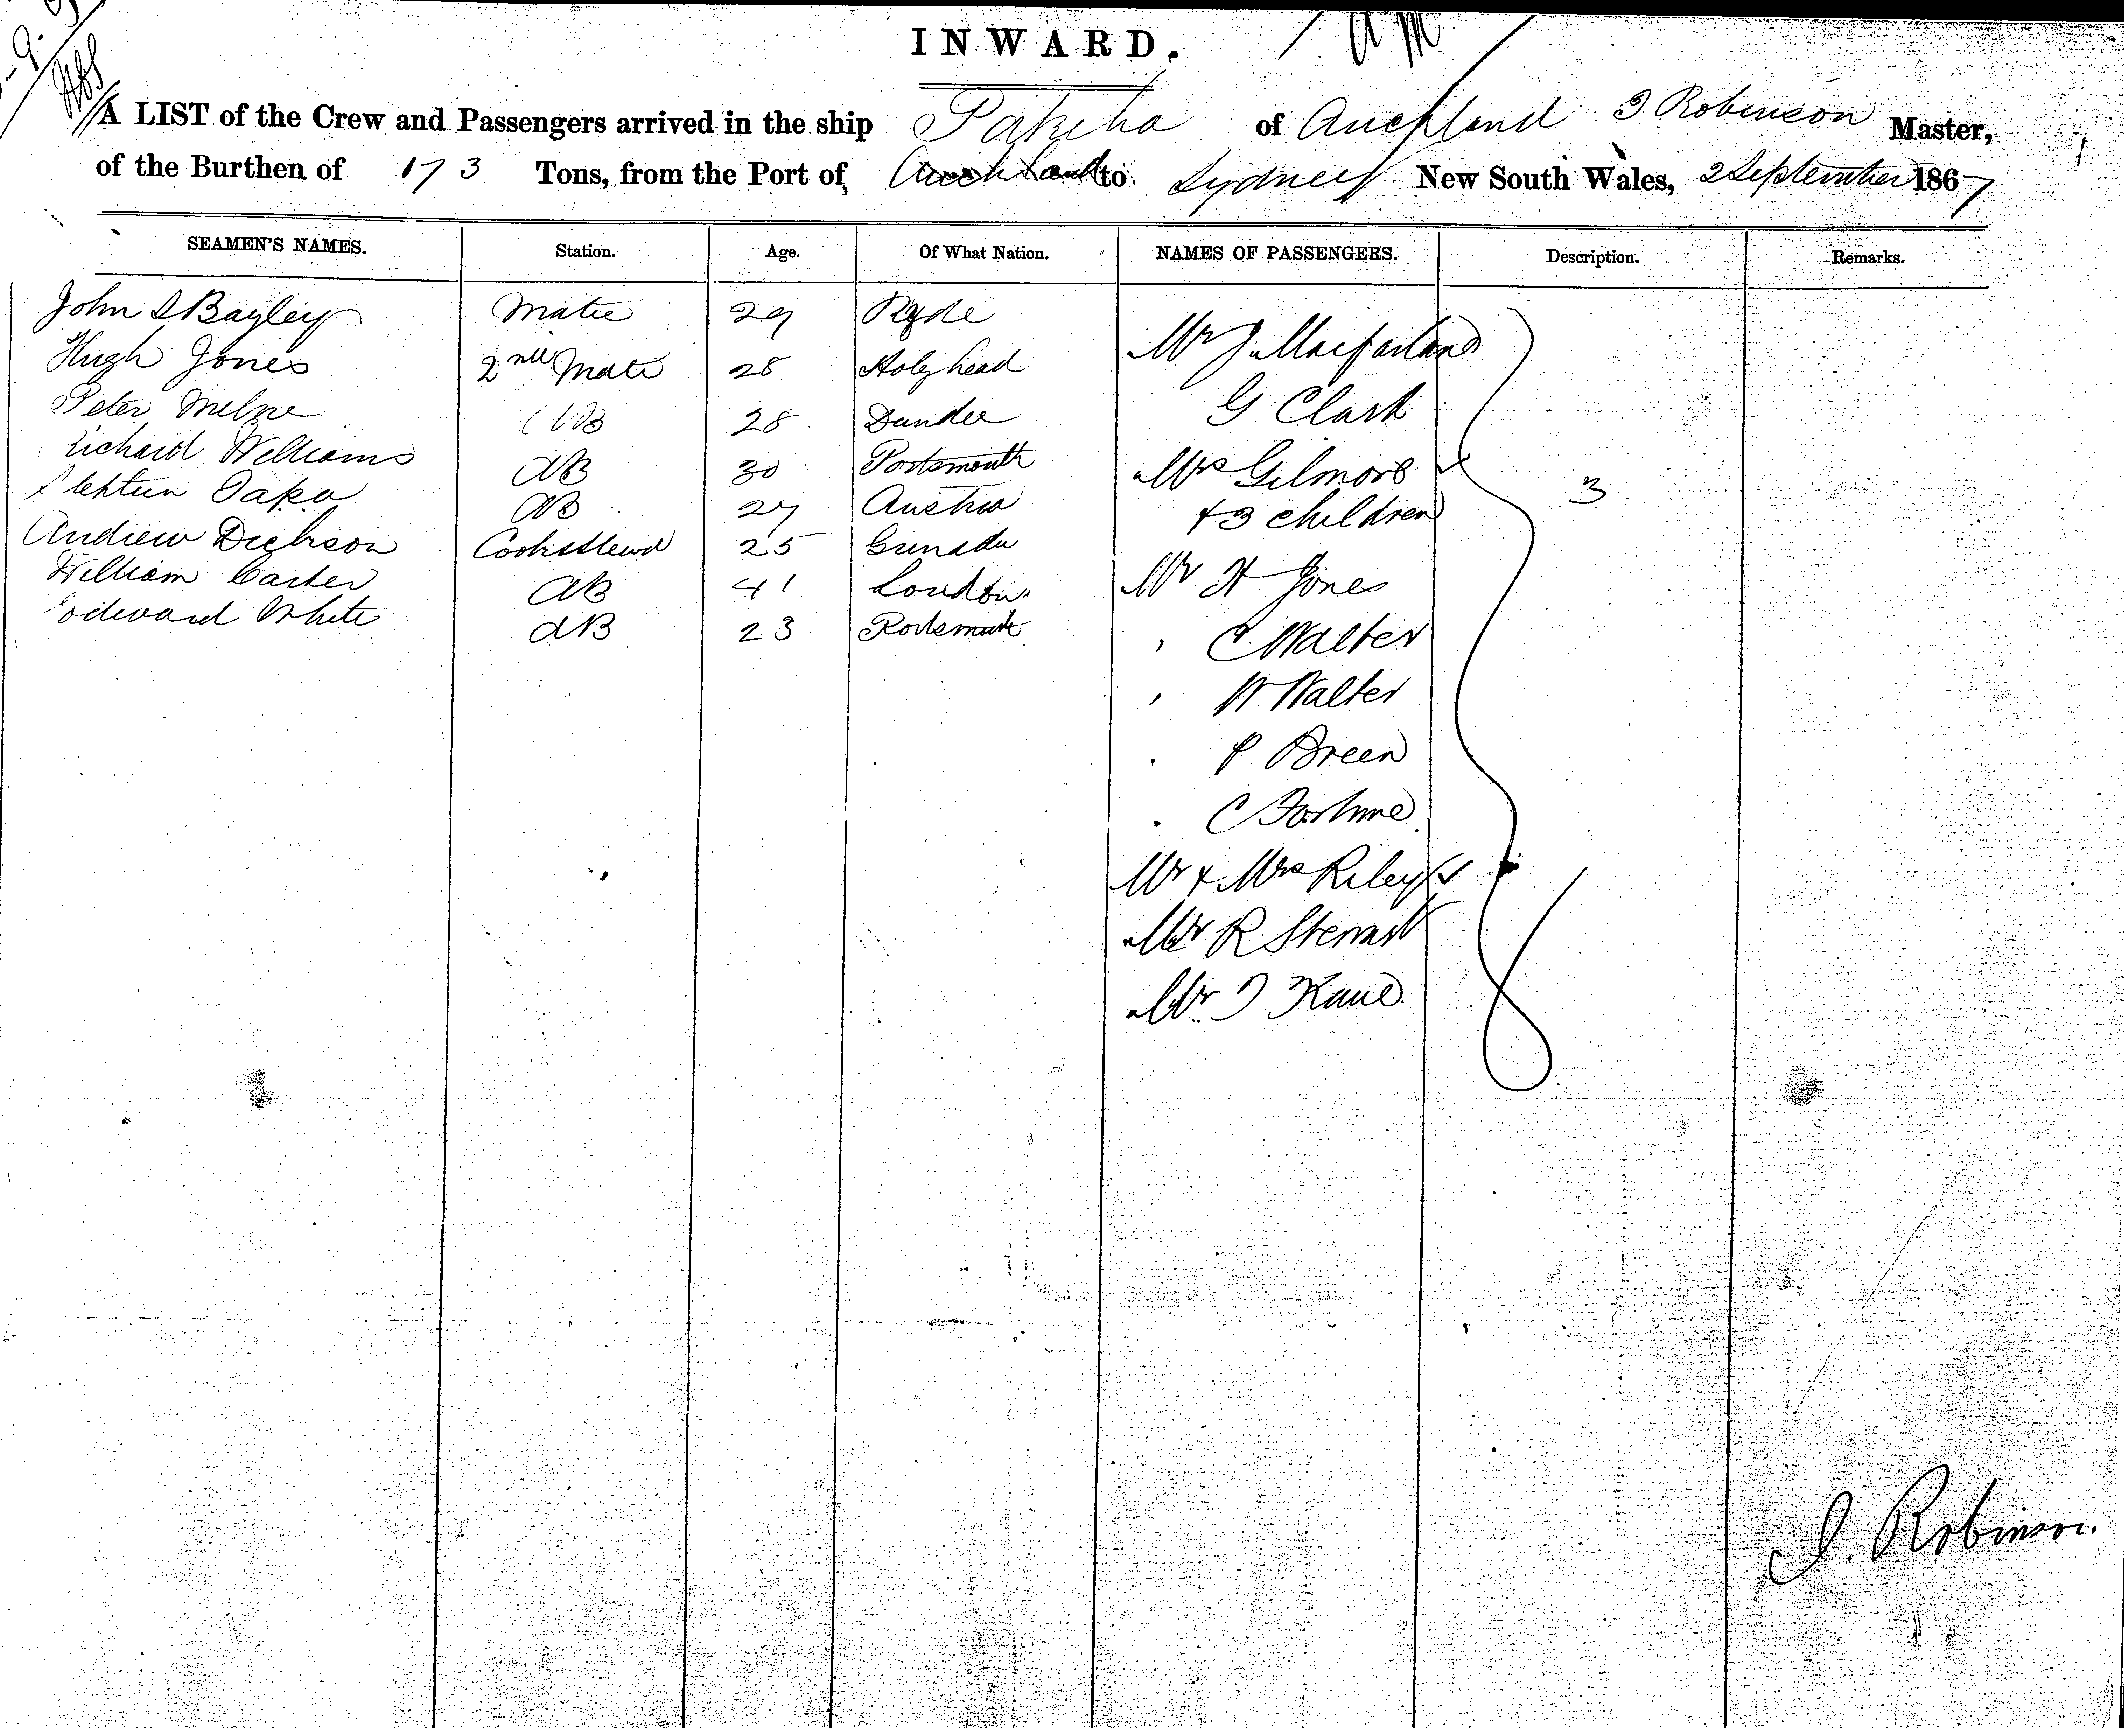 INWARD.
A LIST of the Crew and Passengers arrived in the ship Pakeha of Auckland J Robinson Master,
of the Burthen of 173 Tons, from the Port of Auckland to Sydney New South Wales, 2 September 1867
SEAMEN'S NAMES. Station. Age. Of What Nation. NAMES OF PASSENGERS. Description. Remarks.
John S Bayley Mate 29 Ryde
Hugh Jones 2nd Mate 28 Holyhead
Peter Milne AB 28 Dundee
Richard Williams AB 30 Portsmouth
AB 27 Austria
Andrew Dickson Cook & Stewd 25
William Carter AB 41 London
Edward White AB 23 Portsmouth
Mr J. Macfarland
G Clark
Mrs Gilmore
+ 3 children
3
Mr H Jones
" C Walter
" W Walter
" P Breen
" C Fortune
Mr & Mrs Riley
Mr R Stewart
Mr J Kane
J. Robinson.